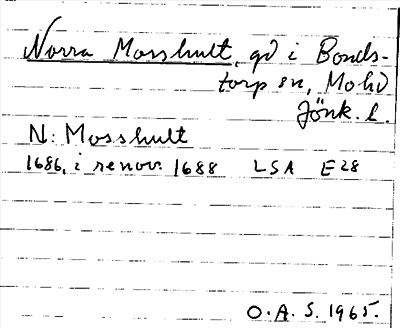 Norra Mosshult, gd i Bonds-
torp sn, Mo hd
Jönk. l.
N: Mosshult
1686, i renov. 1688 LSA E28
O.A.S. 1965.